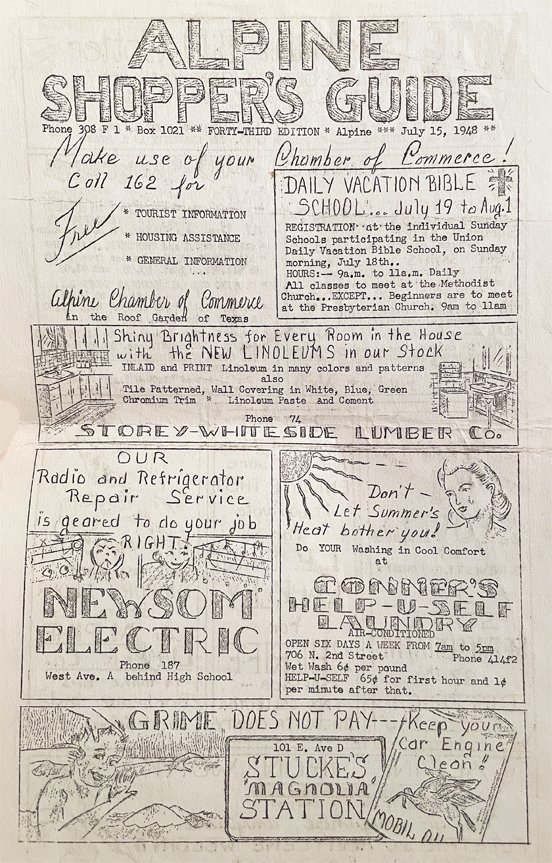 ALPINE
SHOPPER'S GUIDE
Phone 308 F 1 * Box 1021 ** FORTY-THIRD EDITION * Alpine *** July 15, 1948 **
Make use of your Chamber of Commerce!
Call 162 for
Free
* TOURIST INFORMATION
* HOUSING ASSISTANCE
* GENERAL INFORMATION
...
Alpine Chamber of Commerce
in the Roof Garden of Texas
DAILY VACATION BIBLE
SCHOOL... July 19 to Aug. 1
REGISTRATION at the individual Sunday
Schools participating in the Union
Daily Vacation Bible School, on Sunday
morning, July 18th..
HOURS:-- 9a.m. to 11a.m. Daily
All classes to meet at the Methodist
Church...EXCEPT... Beginners are to meet
at the Presbyterian Church. 9am to 11am
Shiny Brightness for Every Room in the House
with the NEW LINOLEUMS in our Stock
INLAID and PRINT Linoleum in many colors and patterns
also
Tile Patterned, Wall Covering in White, Blue, Green
Chromium Trim * Linoleum Paste And Cement
Phone 74
STOREY-WHITESIDE LUMBER Co.
OUR
Radio and Refrigerator
Repair Service
is geared to do your job
RIGHT!
NEWSOM
ELECTRIC
Phone 187
West Ave. A behind High School
Don't -
Let Summer's
Heat bother you!
Do YOUR Washing in Cool Comfort
at
CONNER'S
HELP-U-SELF
LAUNDRY
AIR-CONDITIONED
OPEN SIX DAYS A WEEK FROM 7am to 5pm
706 N. 2nd Street Phone 414f2
Wet Wash 6¢ per pound
HELP-U-SELF 65¢ for first hour and 1¢
per minute after that.
GRIME DOES NOT PAY---
101 E. Ave D
STUCKE'S
'MAGNOLIA'
STATION
Keep your
Car Engine
Clean!
MOBIL OIL